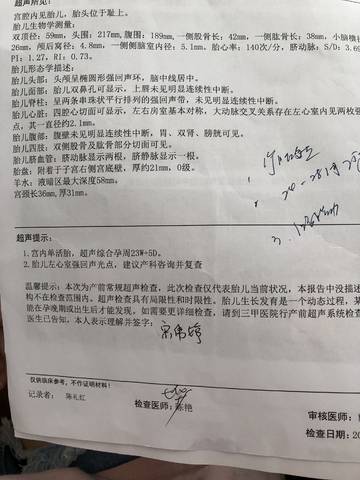 超声所见：
宫腔内见胎儿，胎头位于耻上。
胎儿生物学测量：
双顶径：59mm，头围：217mm,腹围：189mm,一侧股骨长：42mm，一侧肱骨长：38mm，小脑横
26mm，颅后窝径：4.8mm，一侧侧脑室内径：5.1mm。胎心率：140次/分，脐动脉：S/D：3.69
PI：1.27，RI：0.73。
胎儿形态学描述：
胎儿头部：头颅呈椭圆形强回声环，脑中线居中。
胎儿面部：胎儿双鼻孔可显示，上唇未见明显连续性中断。
胎儿脊柱：呈两条串珠状平行排列的强回声带，未见明显连续性中断。
胎儿心脏：四腔心切面可显示，左右房室基本对称，大动脉交叉关系存在左心室内见两枚强
点，其一直径约2.1mm。
胎儿腹部：腹壁未见明显连续性中断，胃、双肾、膀胱可见。
胎儿四肢：双侧股骨及肱骨部分切面可见。
胎儿脐血管：脐动脉显示两根，脐静脉显示一根。
胎盘：附着于子宫右侧宫底壁，厚约21mm，0级。
羊水：液暗区最大深度58mm。
宫颈长36mm,厚31mm。
24-28
超声提示：
1.宫内单活胎，超声综合孕周23W+5D。
2.胎儿左心室强回声光点，建议产科咨询并复查
温馨提示：本次为产前常规超声检查，此次检查仅代表胎儿当前状况，本报告中没描述
构不在检查范围内。超声检查具有局限性和时限性。胎儿生长发育是一个动态过程，某
能在孕晚期或出生后才能发现，如需要更详细检查，请到三甲医院行产前超声系统检查
医生已告知，本人表示理解并签字：
仅供临床参考，不作证明材料！
记录者： 陈礼红
检查医师：陈艳
审核医师：
检查日期：20